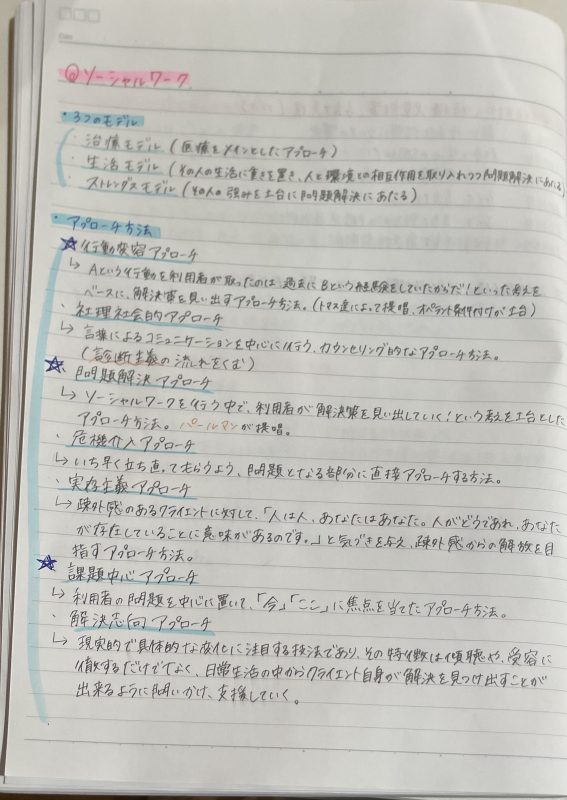 ◎ソーシャルワーク
・3つのモデル
・治療モデル(医療をメインとしたアプローチ)
・生活モデル(その人の生活に重きを置き、人と環境との相互作用を取り入れつつ問題解決にあたる)
・ストレングスモデル(その人の強みを土台に問題解決にあたる)
・アプローチ方法
☆行動変容アプローチ
↳Aという行動を利用者が取ったのは、過去にBという経験をしていたからだ!といった考えを
ベースに、解決策を見い出すアプローチ方法。(トマス達によって提唱、オペラント条件付けが土台)
・社理社会的アプローチ
↳言葉によるコミュニケーションを中心に行う、カウンセリング的なアプローチ方法。
(診断主義の流れをくむ)
☆問題解決アプローチ
↳ソーシャルワークを行う中で、利用者が解決策を見い出していく!という考えを土台とした
アプローチ方法。パールマンが提唱。
・危機介入アプローチ
↳いち早く立ち直ってもらうよう、問題となる部分に直接アプローチする方法。
・実存主義アプローチ
↳疎外感のあるクライエントに対して、「人は人、あなたはあなた。人がどうであれ、あなた
が存在していることに意味があるのです。」と気づきを与え、疎外感からの解放を目
指すアプローチ方法。
☆課題中心アプローチ
↳利用者の問題を中心に置いて、「今」「ここ」に焦点を当てたアプローチ方法。
・解決志向アプローチ
↳現実的で具体的な変化に注目する技法であり、その特徴は傾聴や、受容に
徹するだけでなく、日常生活の中からクライエント自身が解決を見つけ出すことが
出来るように問いかけ、支援していく。